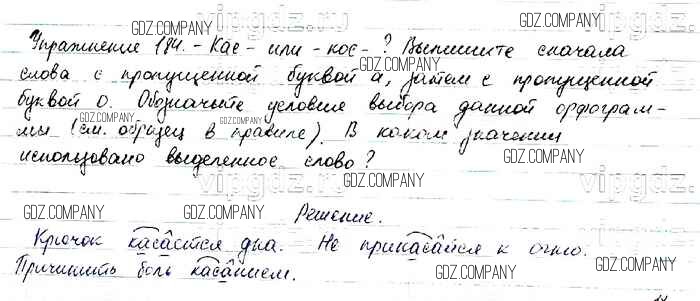 Упражнение 184. - Кас - или - кос - ? Выпишите сначала
слова с пропущенной буквой а, затем с пропущенной
буквой о. Обозначьте условие выбора данной орфограм-
мы (см. образец в правиле). В каком значении
использовано выделенное слово?
Решение.
Крючок касается дна. Не прикасайся к огню.
Причинить боль касанием.
GDZ.COMPANY
GDZ.COMPANY
GDZ.COMPANY
GDZ.COMPANY
GDZ.COMPANY
GDZ.COMPANY
GDZ.COMPANY
GDZ.COMPANY
GDZ.COMPANY
GDZ.COMPANY
GDZ.COMPANY
vipgdz.ru
vipgdz.ru
vipgdz.ru
vipgdz.ru